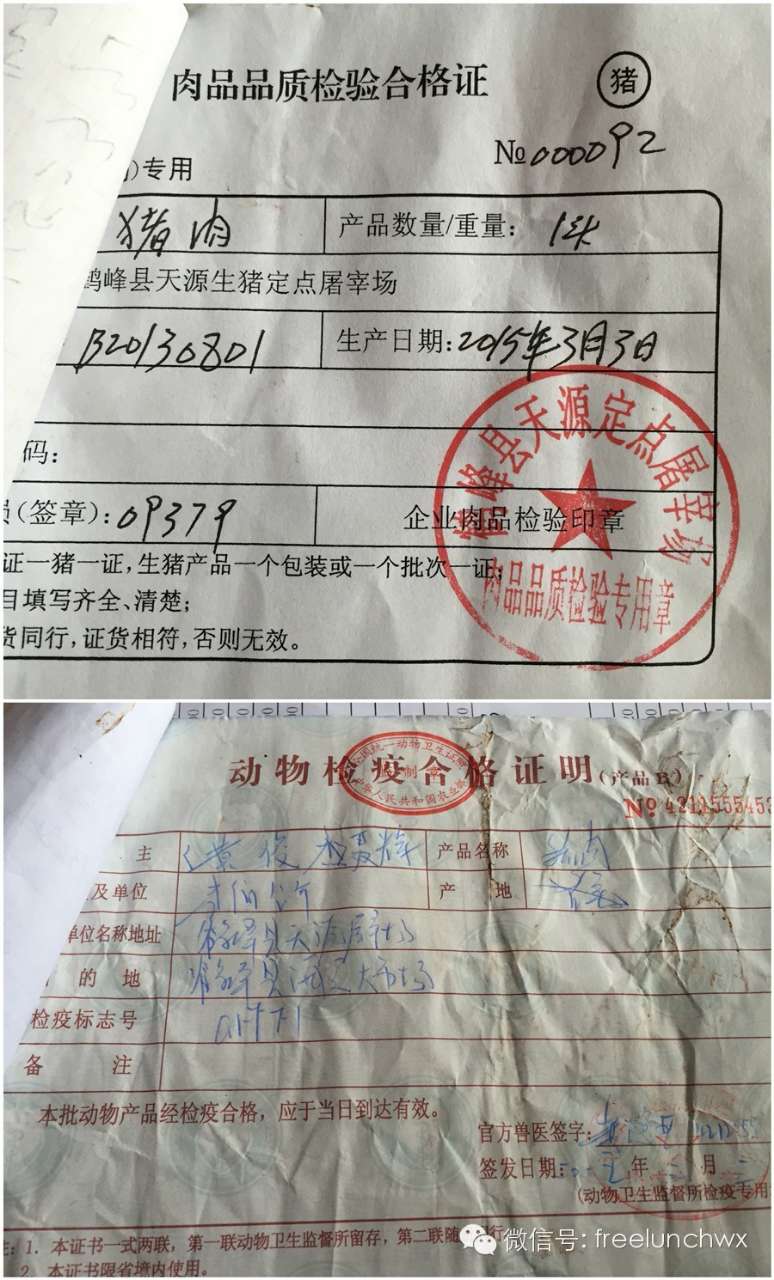 肉品品质检验合格证 猪
№000092
)专用
猪肉 产品数量/重量: 1头
鹤峰县天源生猪定点屠宰场
B20130801 生产日期: 2015年3月3日
码:
员(签章): 09379 企业肉品检验印章
鹤峰县天源定点屠宰场
肉品品质检验专用章
证一猪一证,生猪产品一个包装或一个批次一证;
目填写齐全、清楚;
货同行,证货相符,否则无效。
动物检疫合格证明(产品B)
№ 4211555453
主 黄俊 产品名称 猪肉
及单位 产地
单位名称地址 鹤峰县天源屠宰场
的地 鹤峰县
检疫标志号
备注
本批动物产品经检疫合格,应于当日到达有效。
官方兽医签字:
签发日期: 年 月
(动物卫生监督所检疫专用
注: 1. 本证书一式两联,第一联动物卫生监督所留存,第二联随
2. 本证书限省境内使用。
微信号: freelunchwx